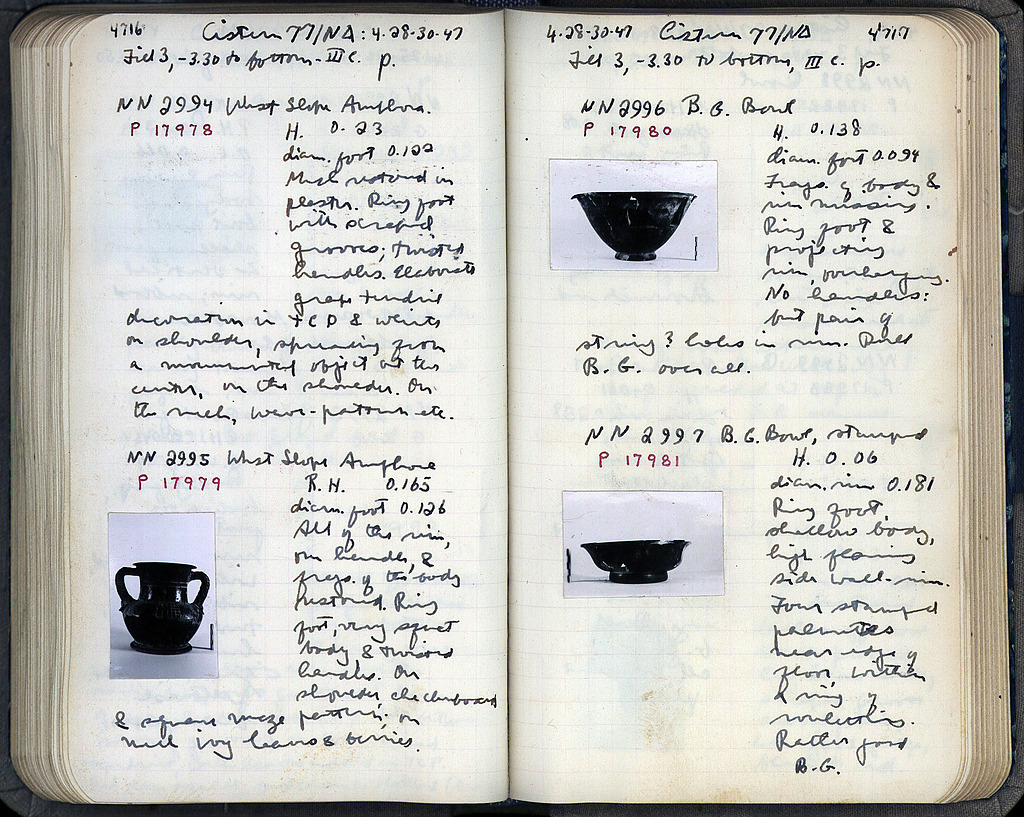 4716 Cistern 77/NA: 4-28-30-47
Fill 3, -3.30 to bottom - III c. p.
NN 2994 West Slope Amphora.
P 17978 H. 0.23
diam. foot 0.122
Much restored in
plaster. Ring foot
with scraped
grooves; twisted
handles. Elaborate
grape tendril
decoration in TCD & white
on shoulder, spreading from
a monumental object at the
center, on the shoulder. On
the neck, wave-pattern etc.
NN 2995 West Slope Amphora
P 17979 R.H. 0.165
diam. foot 0.126
All of the rim,
one handle, &
frags. of the body
restored. Ring
foot, very squat
body & twisted
handles. On
shoulder checkerboard
& square maze pattern; on
neck ivy leaves & berries.
4-28-30-47 Cistern 77/NA 4717
Fill 3, -3.30 to bottom, III c. p.
NN 2996 B.G. Bowl
P 17980 H. 0.138
diam. foot 0.094
Frags. of body &
rim missing.
Ring foot &
projecting
rim, overhanging.
No handles:
but pair of
string? holes in rim. Dull
B.G. over all.
NN 2997 B.G. Bowl, stamped
P 17981 H. 0.06
diam. rim 0.181
Ring foot,
shallow body,
high flaring
side wall-rim.
Four stamped
palmettes
near edge of
floor within
a ring of
rouletting.
Rather good
B.G.